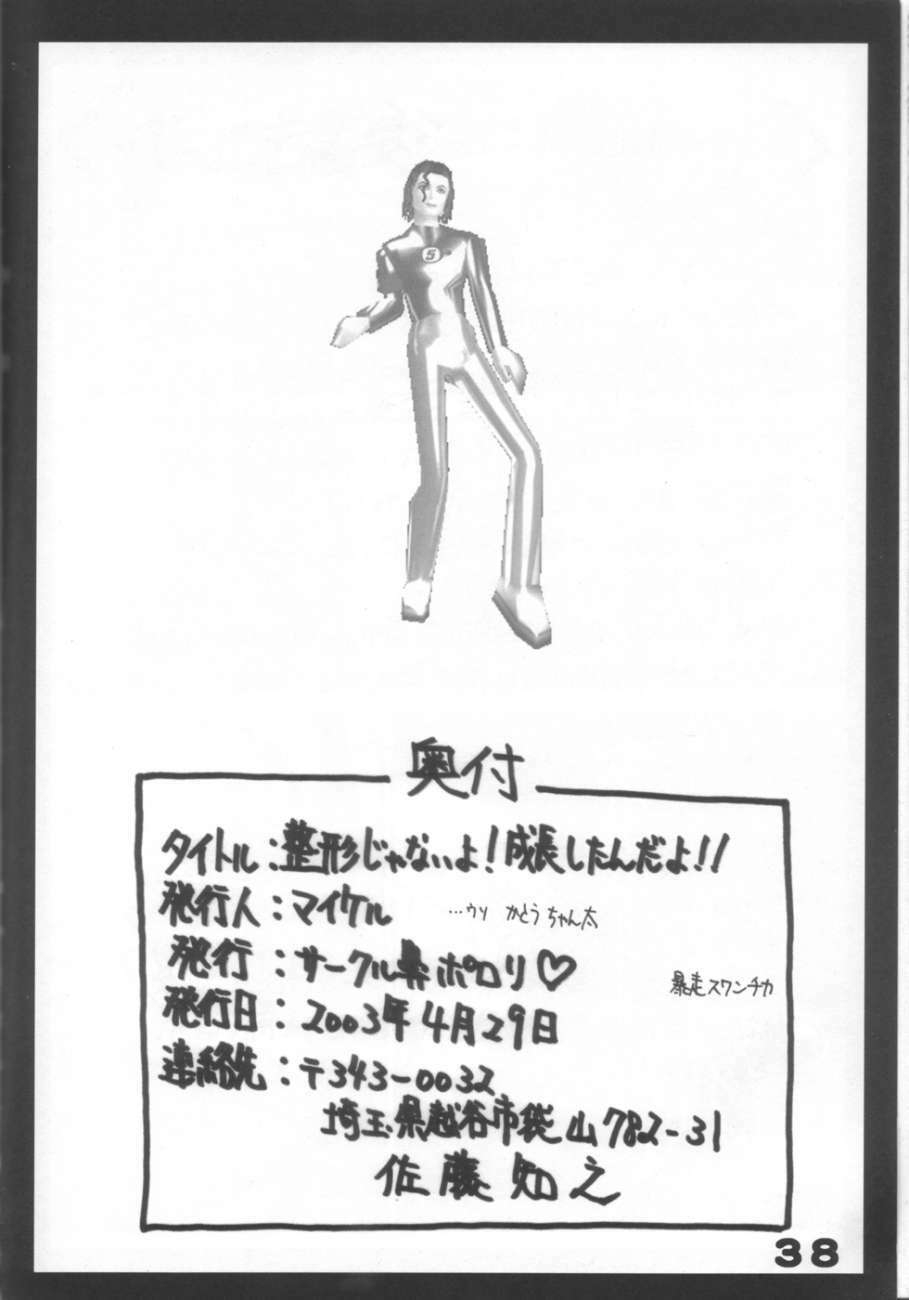 5
奥付
タイトル:整形じゃないよ!成長したんだよ!!
発行人:マイケル …ウソ かとうちゃん太
発行:サークル鼻ポロリ♡
暴走スワンチカ
発行日:2003年4月29日
連絡先:〒343-0032
埼玉県越谷市袋山782-31
佐藤知之
38